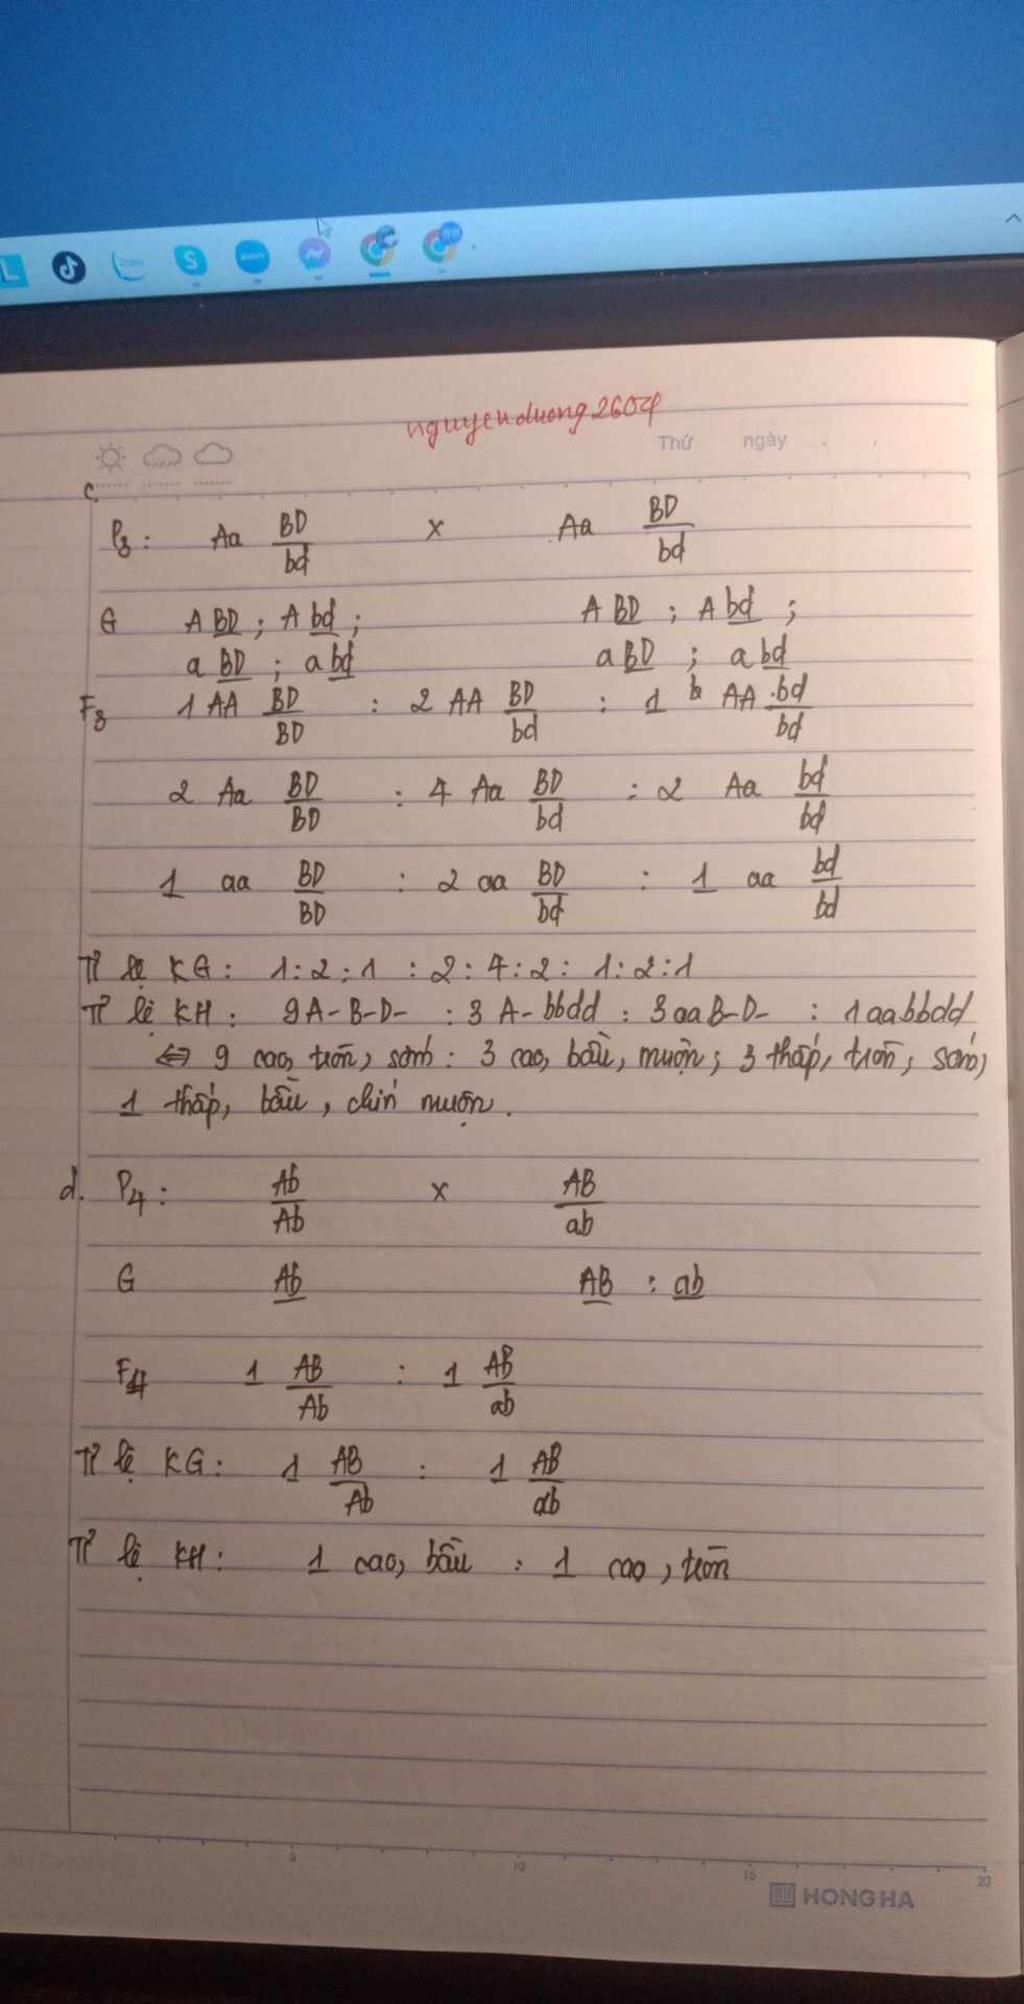 nguyenduong2604
Thứ ngày
c.
P3: Aa BD/bd x Aa BD/bd
G A BD ; A bd ; A BD ; A bd ;
a BD ; a bd a BD ; a bd
F3 1 AA BD/BD : 2 AA BD/bd : 1 AA bd/bd
2 Aa BD/BD : 4 Aa BD/bd : 2 Aa bd/bd
1 aa BD/BD : 2 aa BD/bd : 1 aa bd/bd
Tỉ lệ KG: 1:2:1 : 2:4:2: 1:2:1
Tỉ lệ KH: 9A-B-D- : 3 A-bbdd : 3 aaB-D- : 1aabbdd
⇔ 9 cao, tròn, sớm: 3 cao, bầu, muộn; 3 thấp, tròn, sớm;
1 thấp, bầu, chín muộn.
d. P4: Ab/Ab x AB/ab
G Ab AB : ab
F4 1 AB/Ab : 1 Ab/ab
Tỉ lệ KG: 1 AB/Ab : 1 Ab/ab
Tỉ lệ KH: 1 cao, bầu : 1 cao, tròn
5 10 15 20
HONG HA